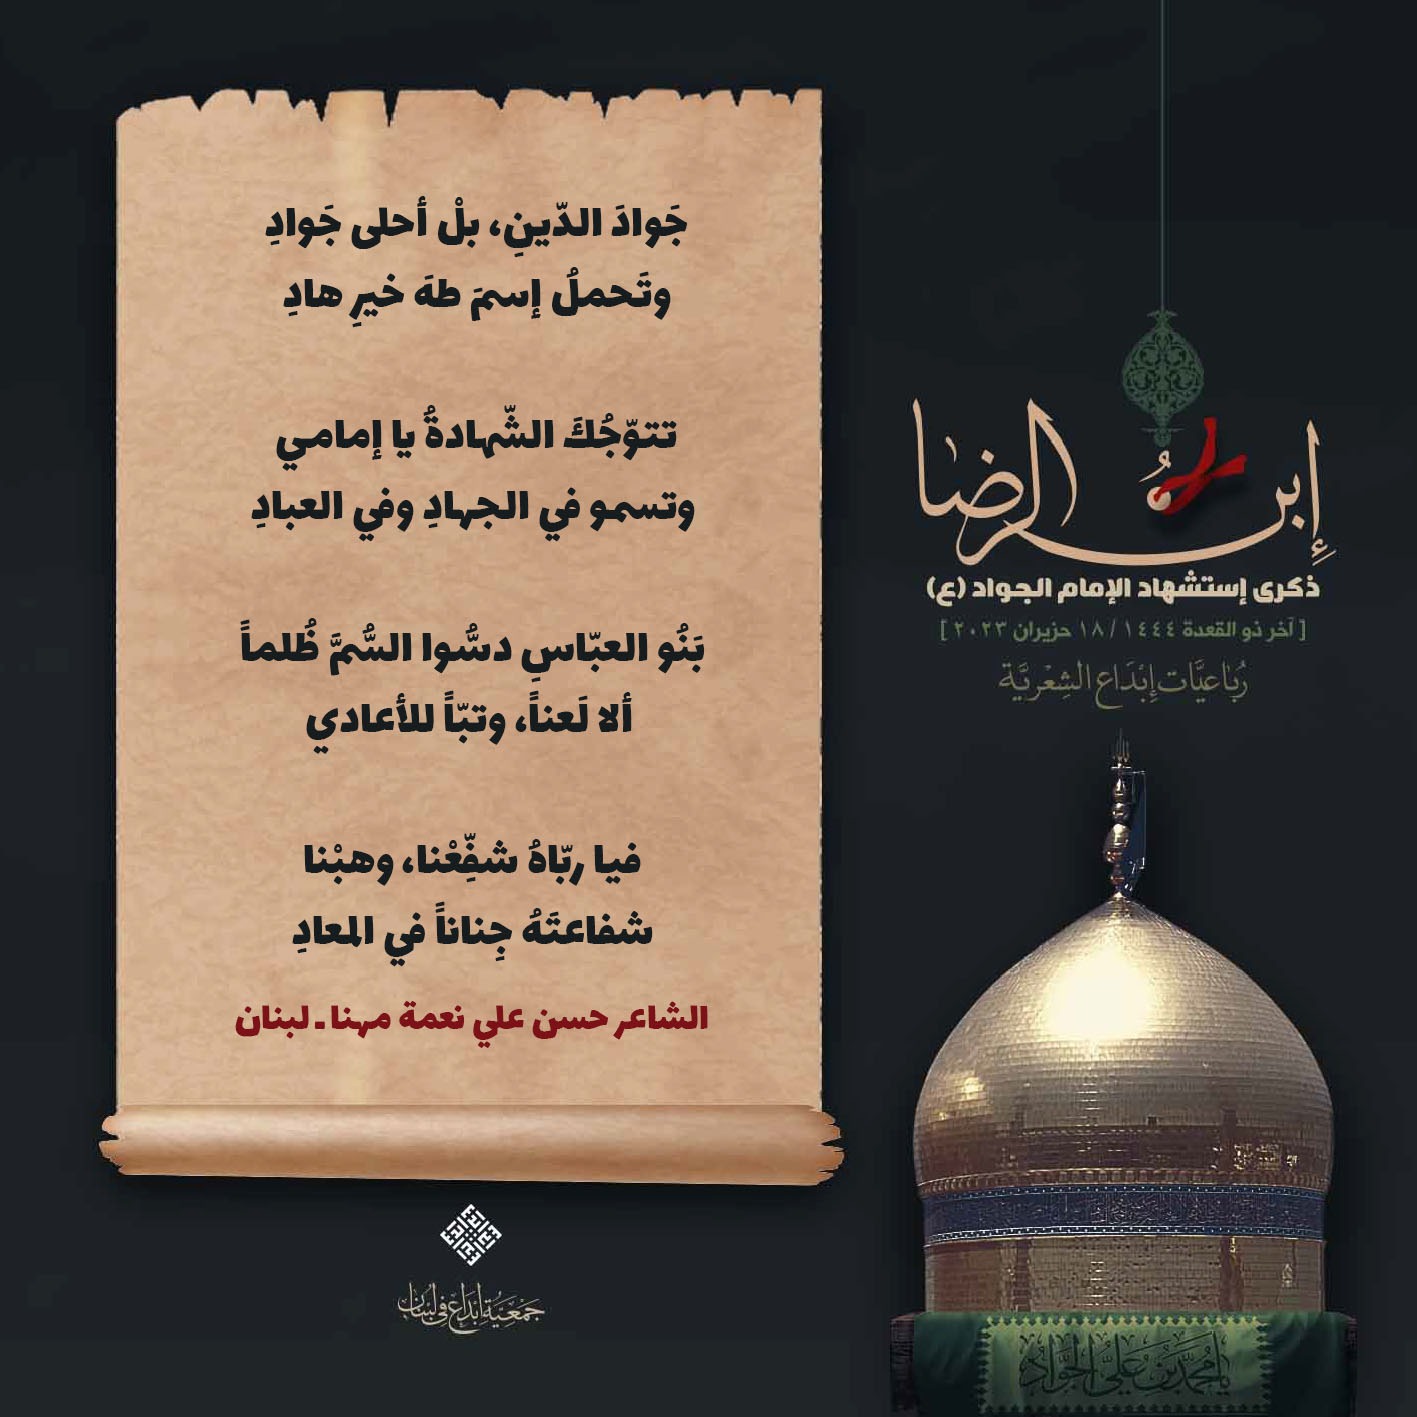 جَوادَ الدّينِ، بلْ أحلى جَوادِ
وتَحملُ إسمَ طهَ خيرِ هادِ
تتوّجُكَ الشّهادةُ يا إمامي
وتسمو في الجهادِ وفي العبادِ
بَنُو العبّاسِ دسُّوا السُّمَّ ظُلماً
ألا لَعناً، وتبّاً للأعادي
فيا ربّاهُ شفِّعْنا، وهبْنا
شفاعتَهُ جِناناً في المعادِ
الشاعر حسن علي نعمة مهنا ـ لبنان
إبن الرضا
ذكرى إستشهاد الإمام الجواد (ع)
[ آخر ذو القعدة ١٤٤٤ / ١٨ حزيران ٢٠٢٣ ]
رُبَاعيَّات إِبْدَاع الشِعْريَّة
يا مُحمَّد بن عَليٍّ الجَوَادُ
جَمْعِيَّة إبْدَاع في لبْنَان